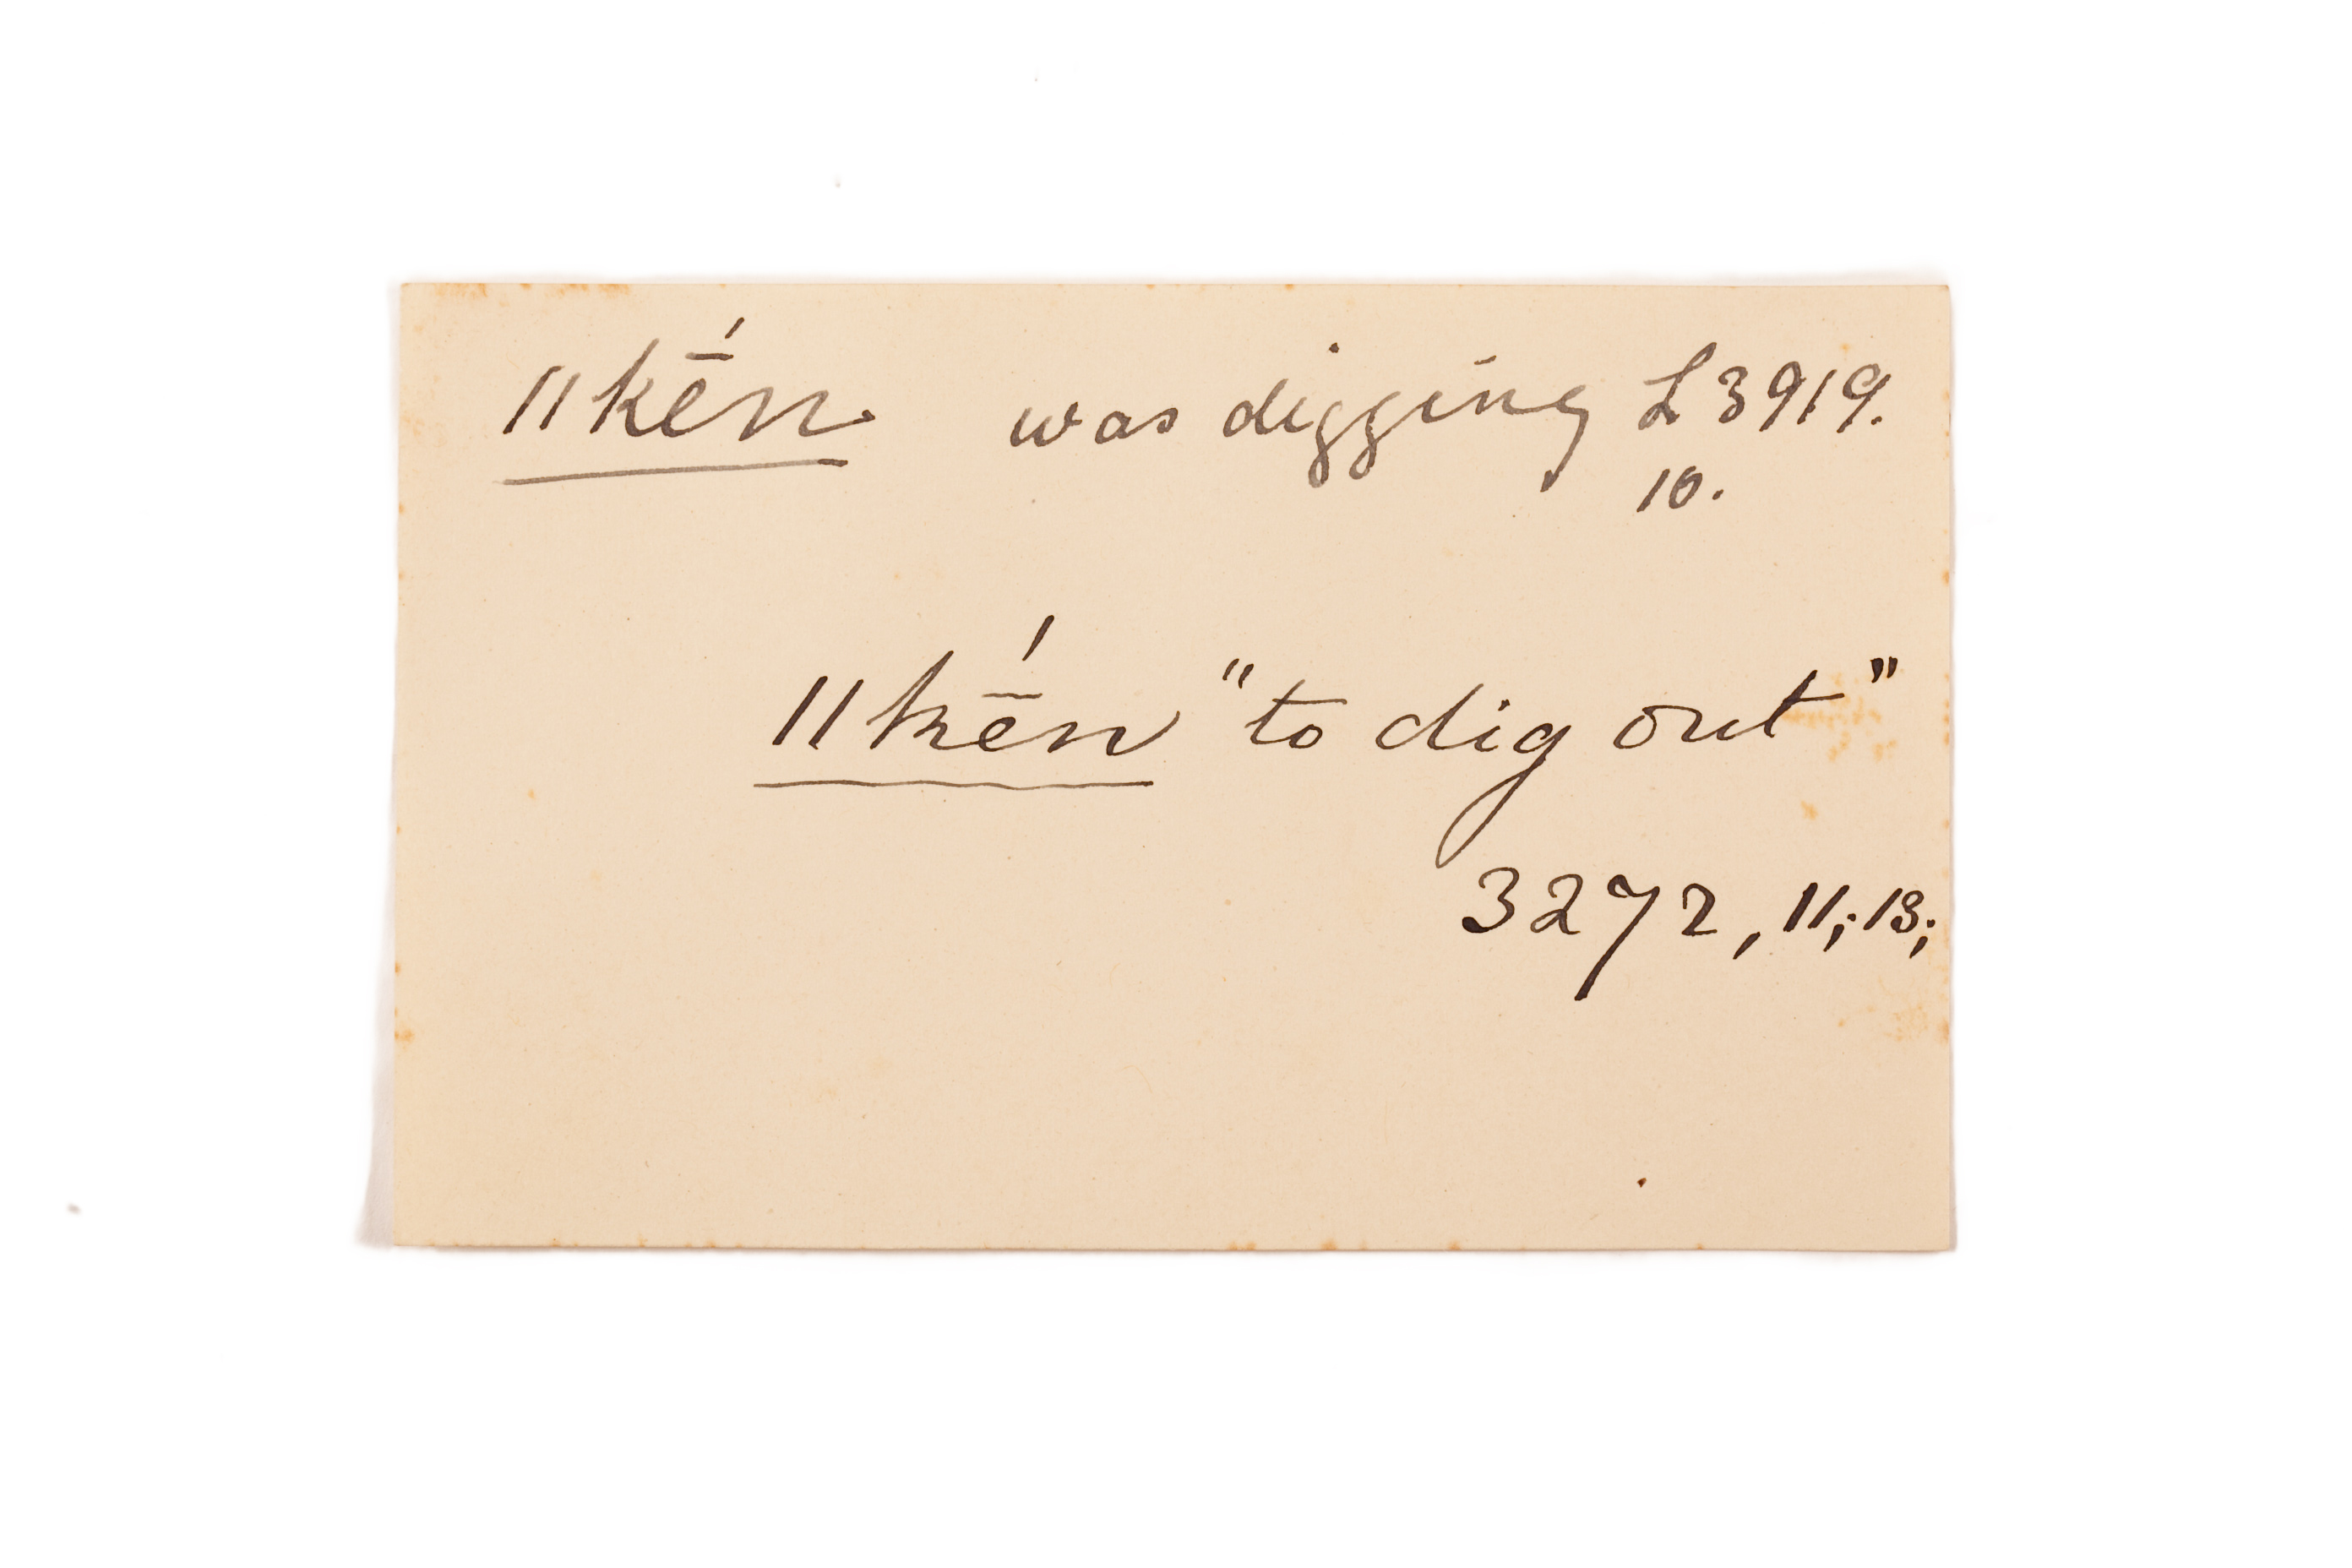 ǁkḗn. was digging L 3919.
10.
ǁkḗn "to dig out"
3272, 11; 13;